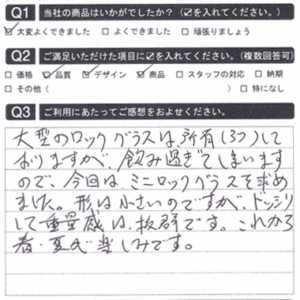 Q1 当社の商品はいかがでしたか?(☑を入れてください。)
☑大変よくできました □よくできました □頑張りましょう
Q2 ご満足いただけた項目に☑を入れてください。(複数回答可)
□価格 ☑品質 ☑デザイン ☑商品 □スタッフの対応 □納期
□その他( ) □特になし
Q3 ご利用にあたってご感想をおよせください。
大型のロックグラスは、所有(3つ)して
おりますが、飲み過ぎてしまいます
ので、今回は、ミニロックグラスを求め
ました。形は小さいのですが、ドッシリ
して重量感は、抜群です。これから
春・夏と楽しみです。